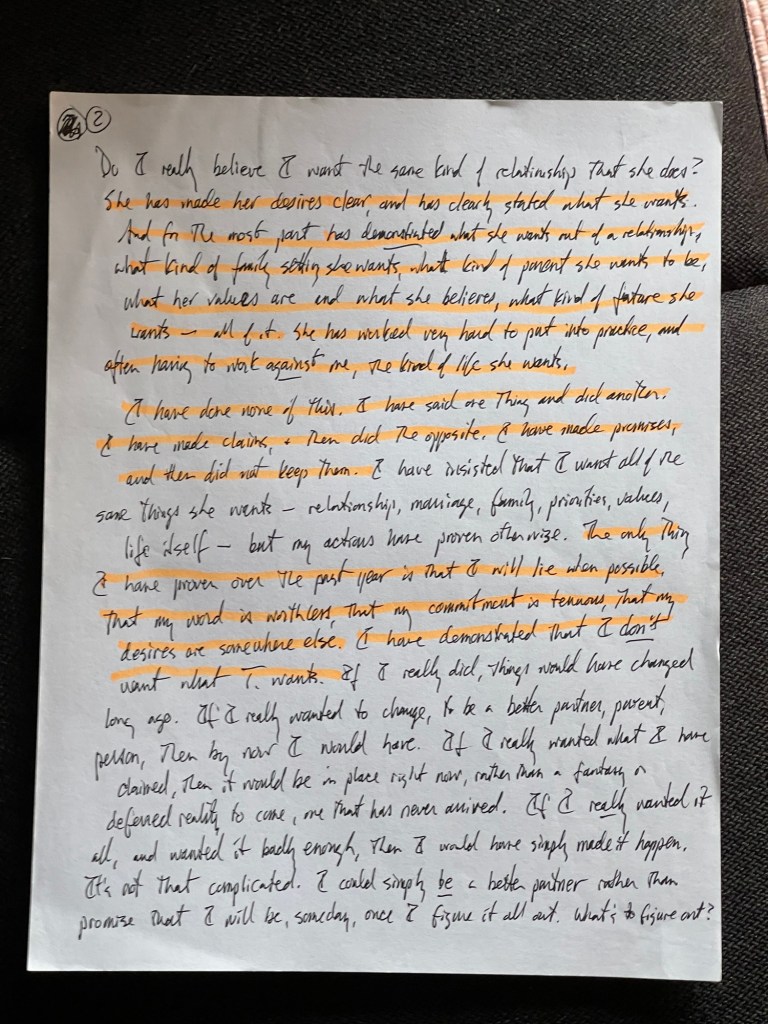 2
Do I really believe I want the same kind of relationship that she does?
She has made her desires clear, and has clearly stated what she wants.
And for the most part has demonstrated what she wants out of a relationship,
what kind of family setting she wants, what kind of parent she wants to be,
what her values are and what she believes, what kind of future she
wants – all of it. She has worked very hard to put into practice, and
often having to work against me, the kind of life she wants.
I have done none of this. I have said one thing and did another.
I have made claims, + then did the opposite. I have made promises,
and then did not keep them. I have insisted that I want all of the
same things she wants – relationship, marriage, family, priorities, values,
life itself – but my actions have proven otherwise. The only thing
I have proven over the past year is that I will lie when possible,
that my word is worthless, that my commitment is tenuous, that my
desires are somewhere else. I have demonstrated that I don't
want what T. wants. If I really did, things would have changed
long ago. If I really wanted to change, to be a better partner, parent,
person, then by now I would have. If I really wanted what I have
claimed, then it would be in place right now, rather than a fantasy or
deferred reality to come, one that has never arrived. If I really wanted it
all, and wanted it badly enough, then I would have simply made it happen.
It's not that complicated. I could simply be a better partner rather than
promise that I will be, someday, once I figure it all out. What's to figure out?